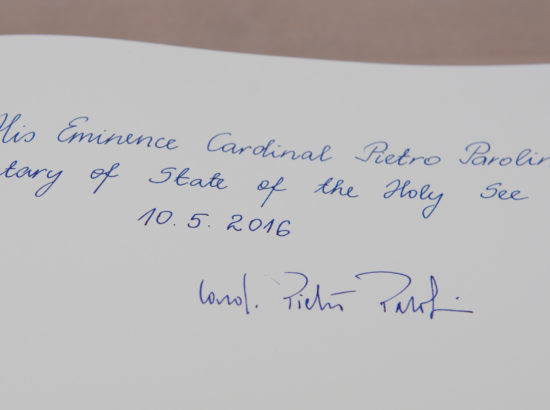 His Eminence Cardinal Pietro Parolin
tary of State of the Holy See
10. 5. 2016
Card. Pietro Parolin